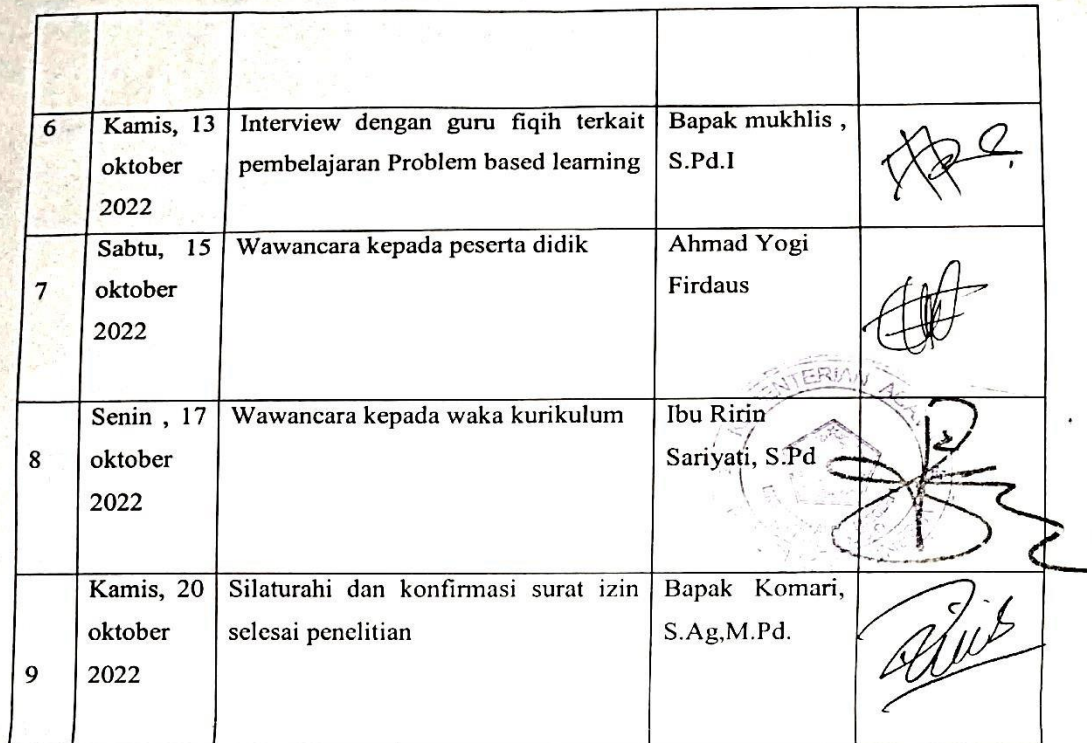 6
Kamis, 13
oktober
2022
Interview dengan guru fiqih terkait
pembelajaran Problem based learning
Bapak mukhlis ,
S.Pd.I
7
Sabtu, 15
oktober
2022
Wawancara kepada peserta didik
Ahmad Yogi
Firdaus
8
Senin , 17
oktober
2022
Wawancara kepada waka kurikulum
Ibu Ririn
Sariyati, S.Pd
9
Kamis, 20
oktober
2022
Silaturahi dan konfirmasi surat izin
selesai penelitian
Bapak Komari,
S.Ag,M.Pd.